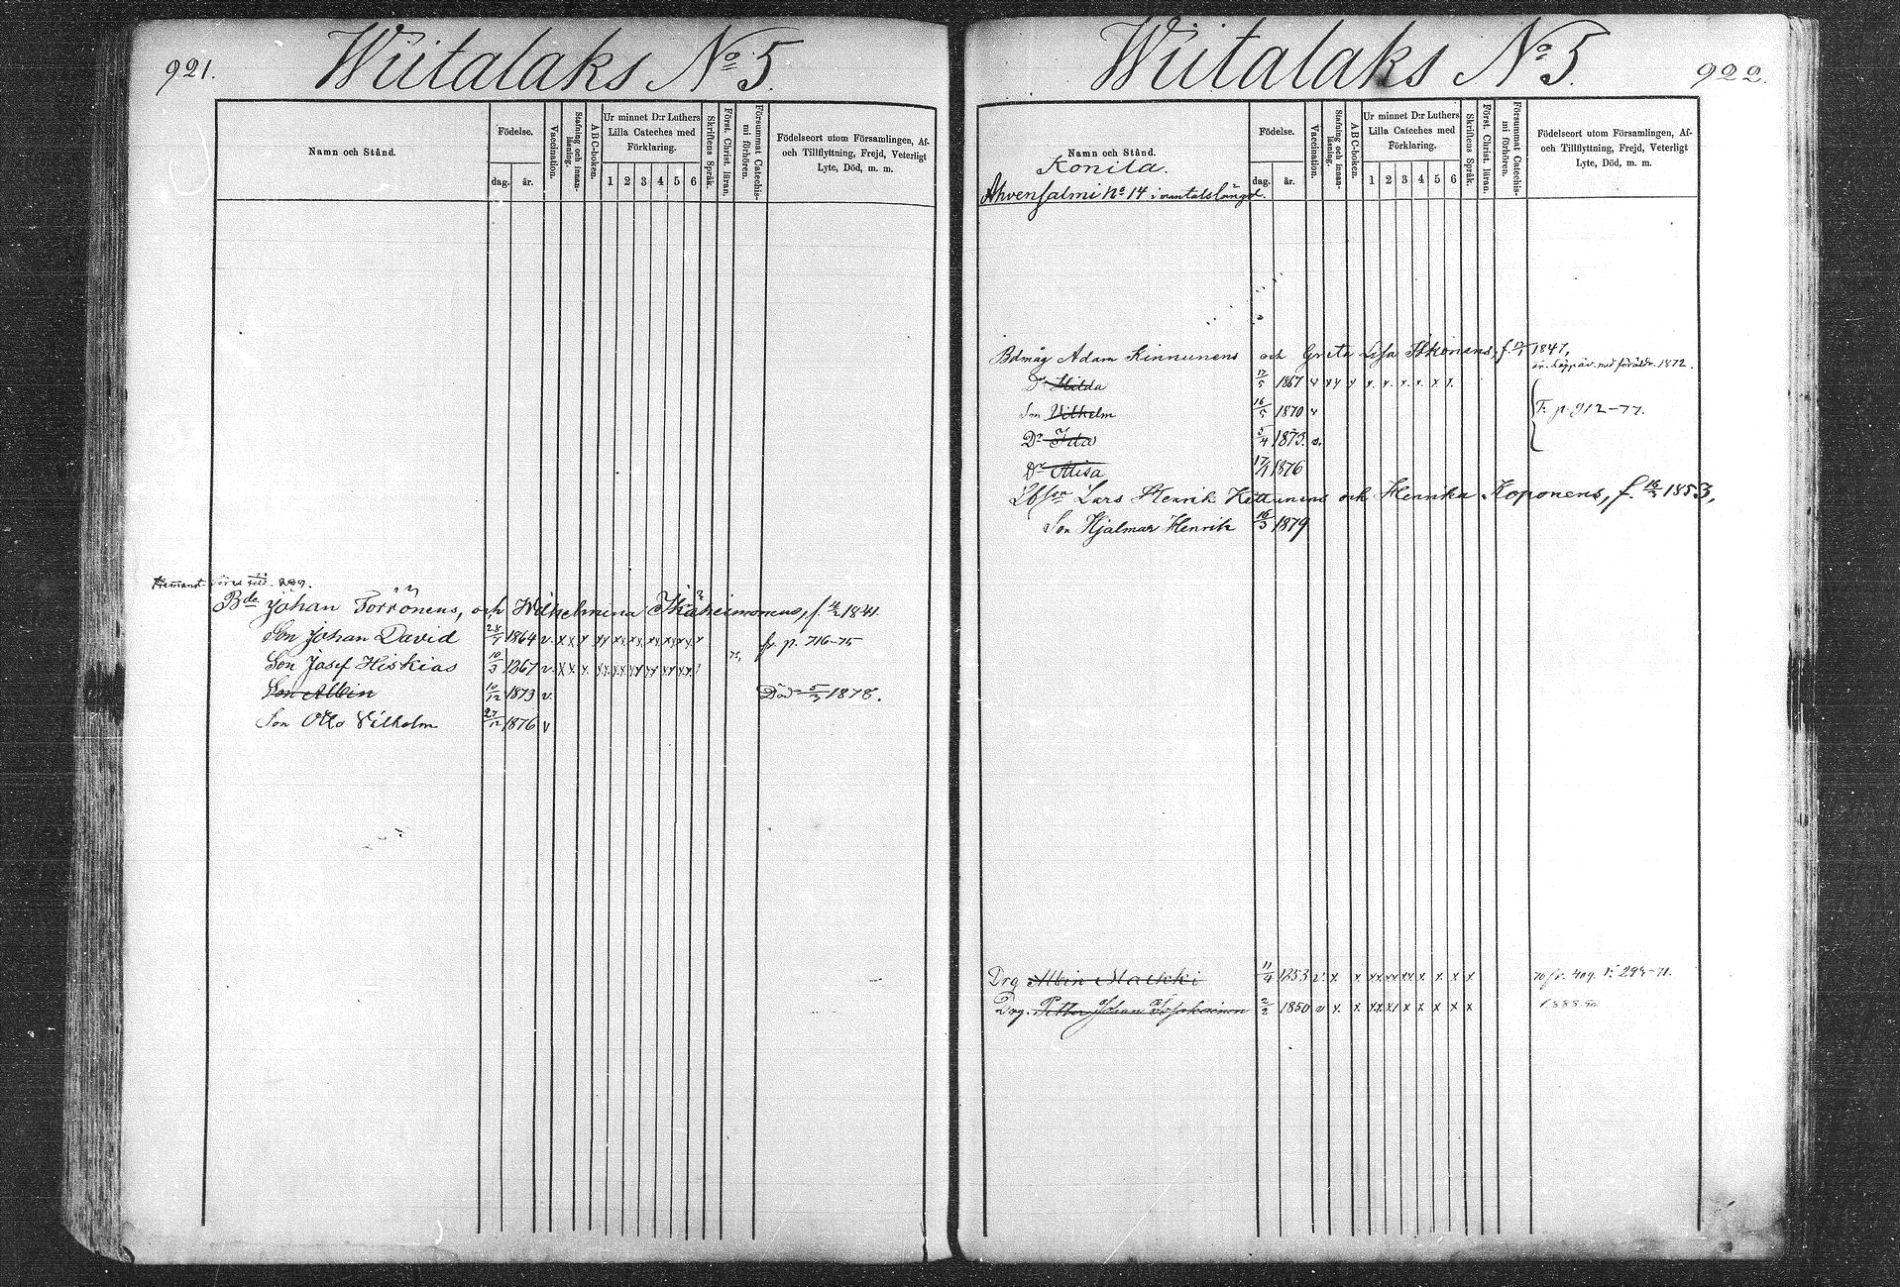 921.
Wiitalaks No 5.
Namn och Stånd.
Födelse.
dag.
år.
Vaccination.
Stafning och innan-
läsning.
ABC-boken.
Ur minnet D:r Luthers
Lilla Cateches med
Förklaring.
1 2 3 4 5 6
Skriftens Språk.
Först. Christ. läran.
Försummat Catechis-
mi förhören.
Födelseort utom Församlingen, Af-
och Tillflyttning, Frejd, Veterligt
Lyte, Död, m. m.
Bde Johan Torrönens, och Wilhelmina Ikäheimonens, f. 1841.
Son Johan David 1864 v. x x x fr. p. 716-75
Son Josef Hiskias 10/3 1867 v. x x x
Son Albin 10/12 1873 v. Död 5/3 1878.
Son Otto Vilhelm 27/12 1876 v
Wiitalaks No 5.
922.
Namn och Stånd.
Konila.
Ahvensalmi No 14 i mantalslängd.
Födelse.
dag.
år.
Vaccination.
Stafning och innan-
läsning.
ABC-boken.
Ur minnet D:r Luthers
Lilla Cateches med
Förklaring.
1 2 3 4 5 6
Skriftens Språk.
Först. Christ. läran.
Försummat Catechis-
mi förhören.
Födelseort utom Församlingen, Af-
och Tillflyttning, Frejd, Veterligt
Lyte, Död, m. m.
Bdmåg Adam Kinnunens och Greta Lisa Ikonens, f. 1847,
Dr Hilda 17/5 1867 v x x x x. x. x. x. x x.
Son Vilhelm 16/5 1870 v T. p. 912-77.
Dr Ida 3/4 1873. v.
Dr Alisa 17/1 1876
Lars Henrik och Henrika Koponens, f. 1853,
Son Hjalmar Henrik 16/3 1879
Drg Albin 11/4 1853 v. x. x xx xx xx x x x x 70 fr. 409. T. 294-71.
Drg. Petter Johan 2/2 1850 v x. x xx xx x x x x x